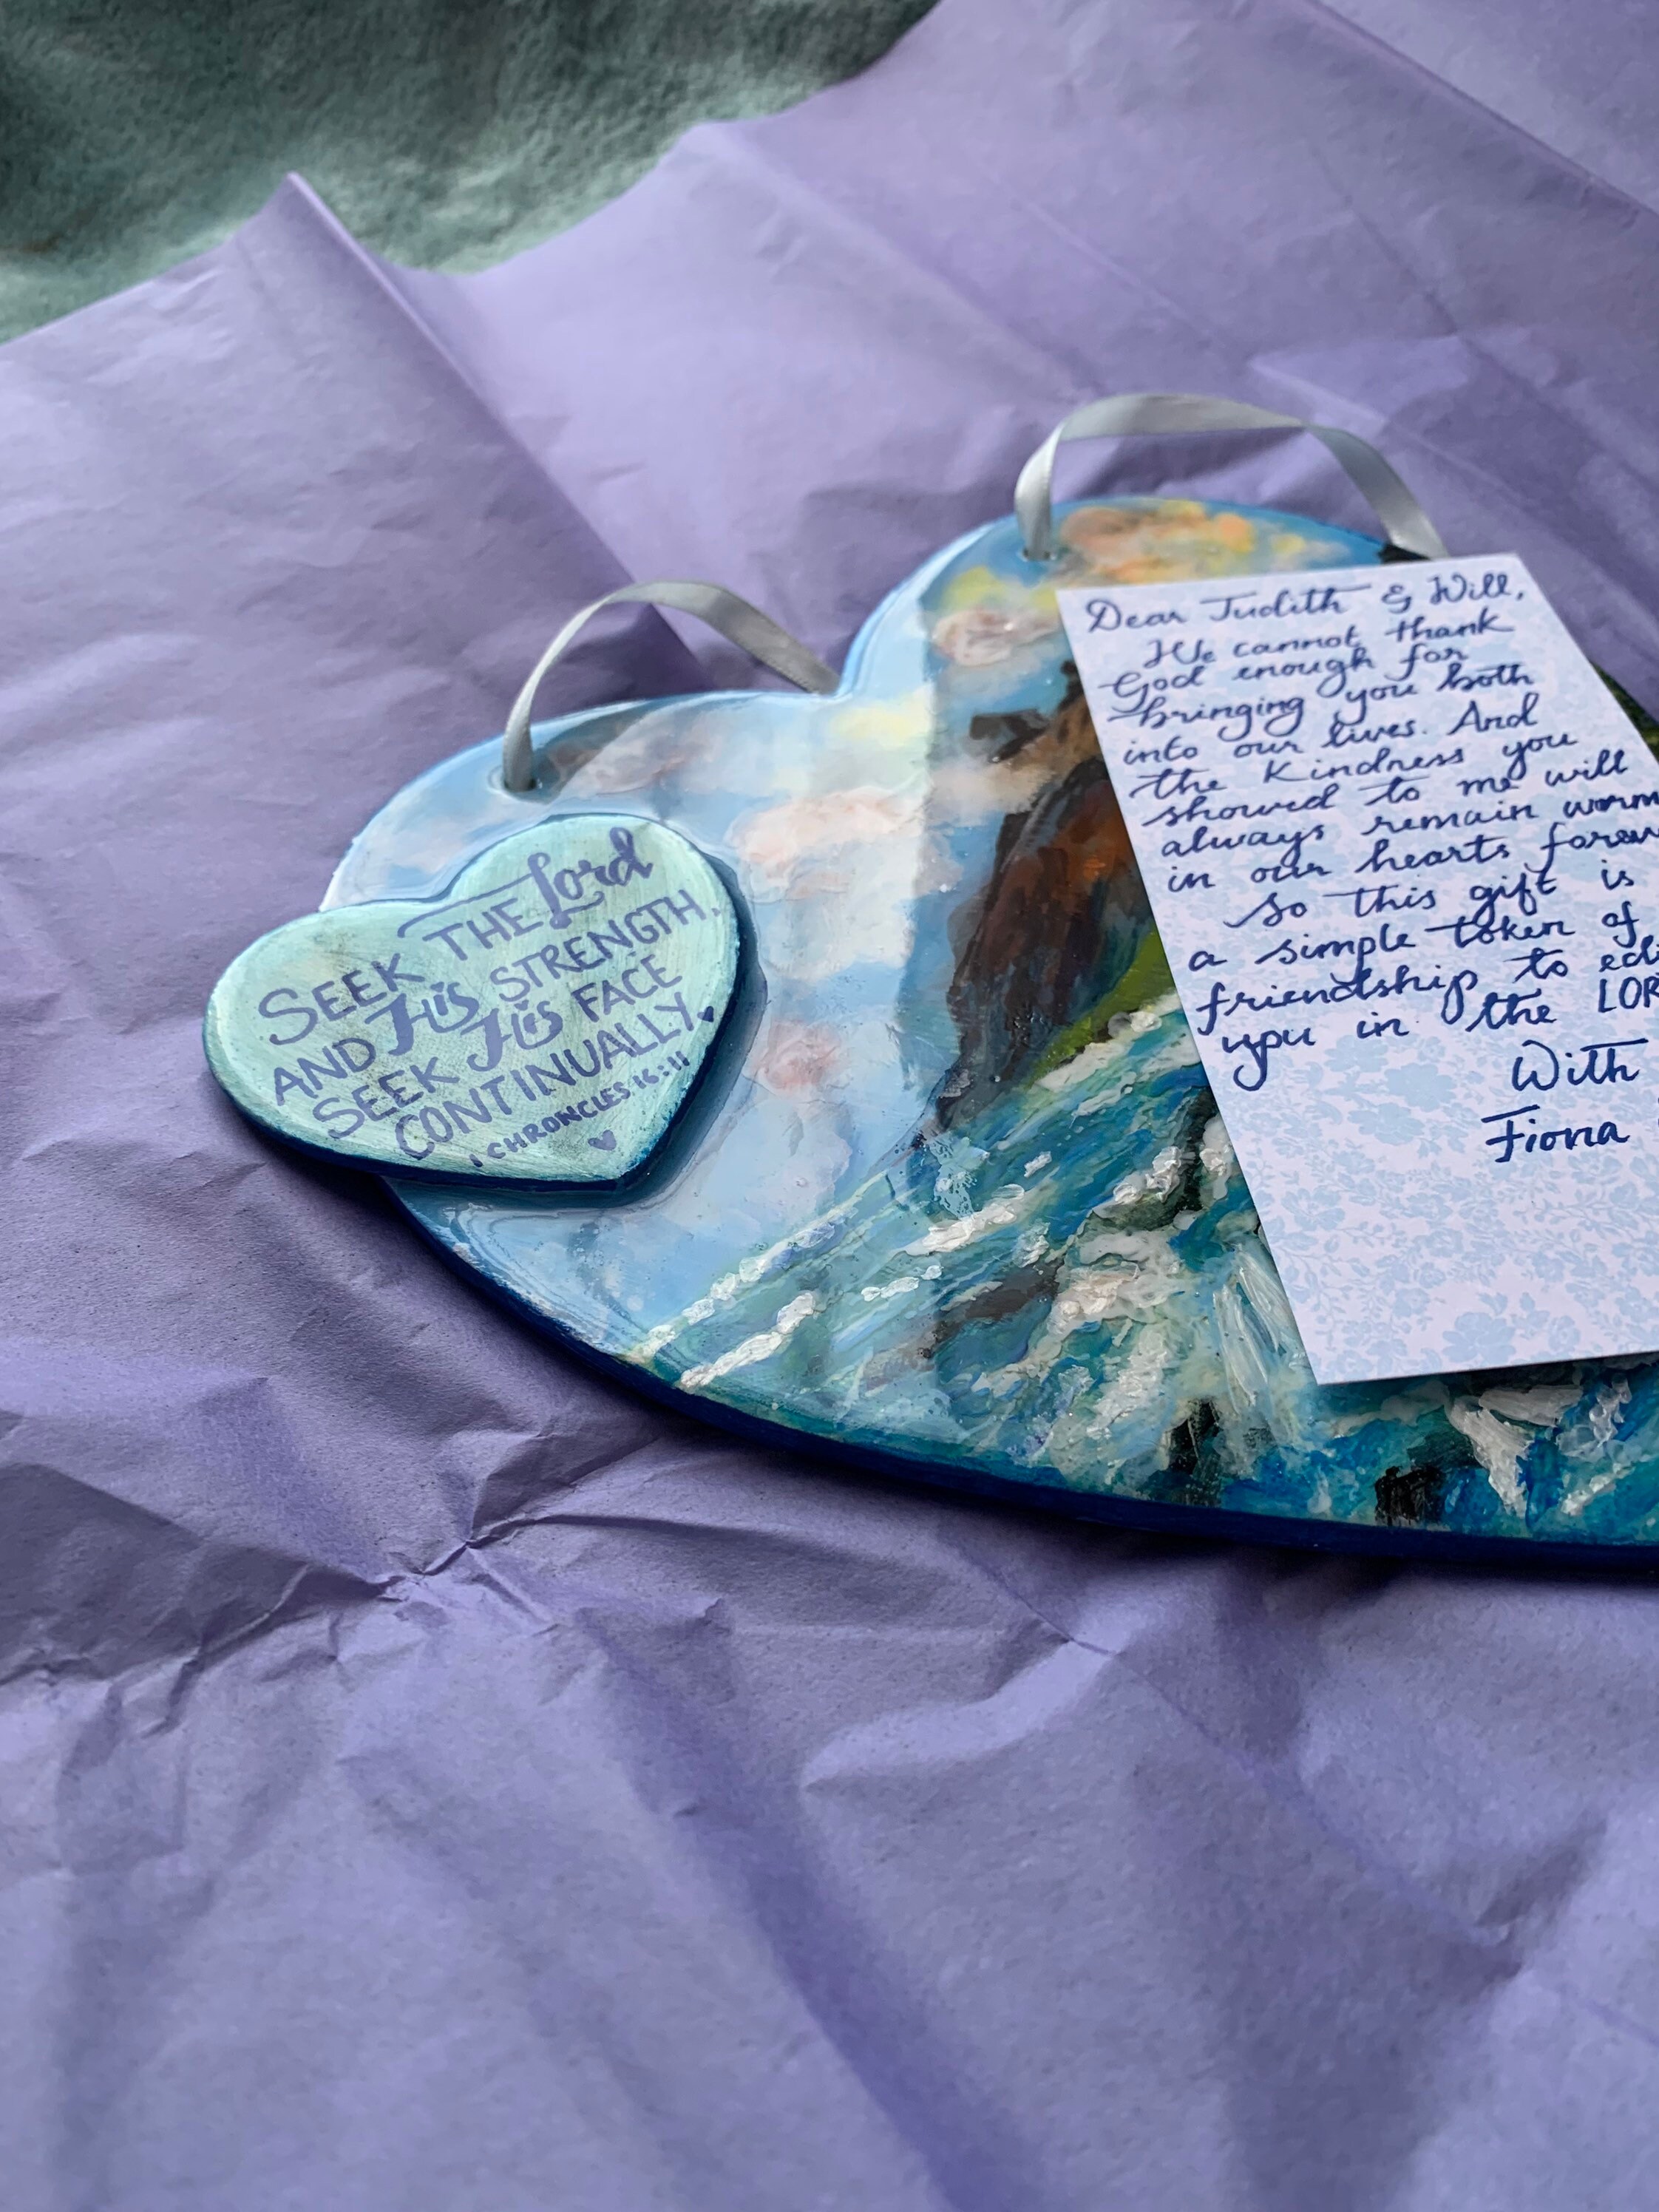 SEEK THE Lord
AND His STRENGTH,
SEEK His FACE
CONTINUALLY.
1 CHRONCLES.16:11
Dear Judith & Will,
We cannot thank
God enough for
bringing you both
into our lives. And
the Kindness you
showed to me will
always remain
in our hearts
So this gift is
a simple token of
friendship to
you in the
With
Fiona